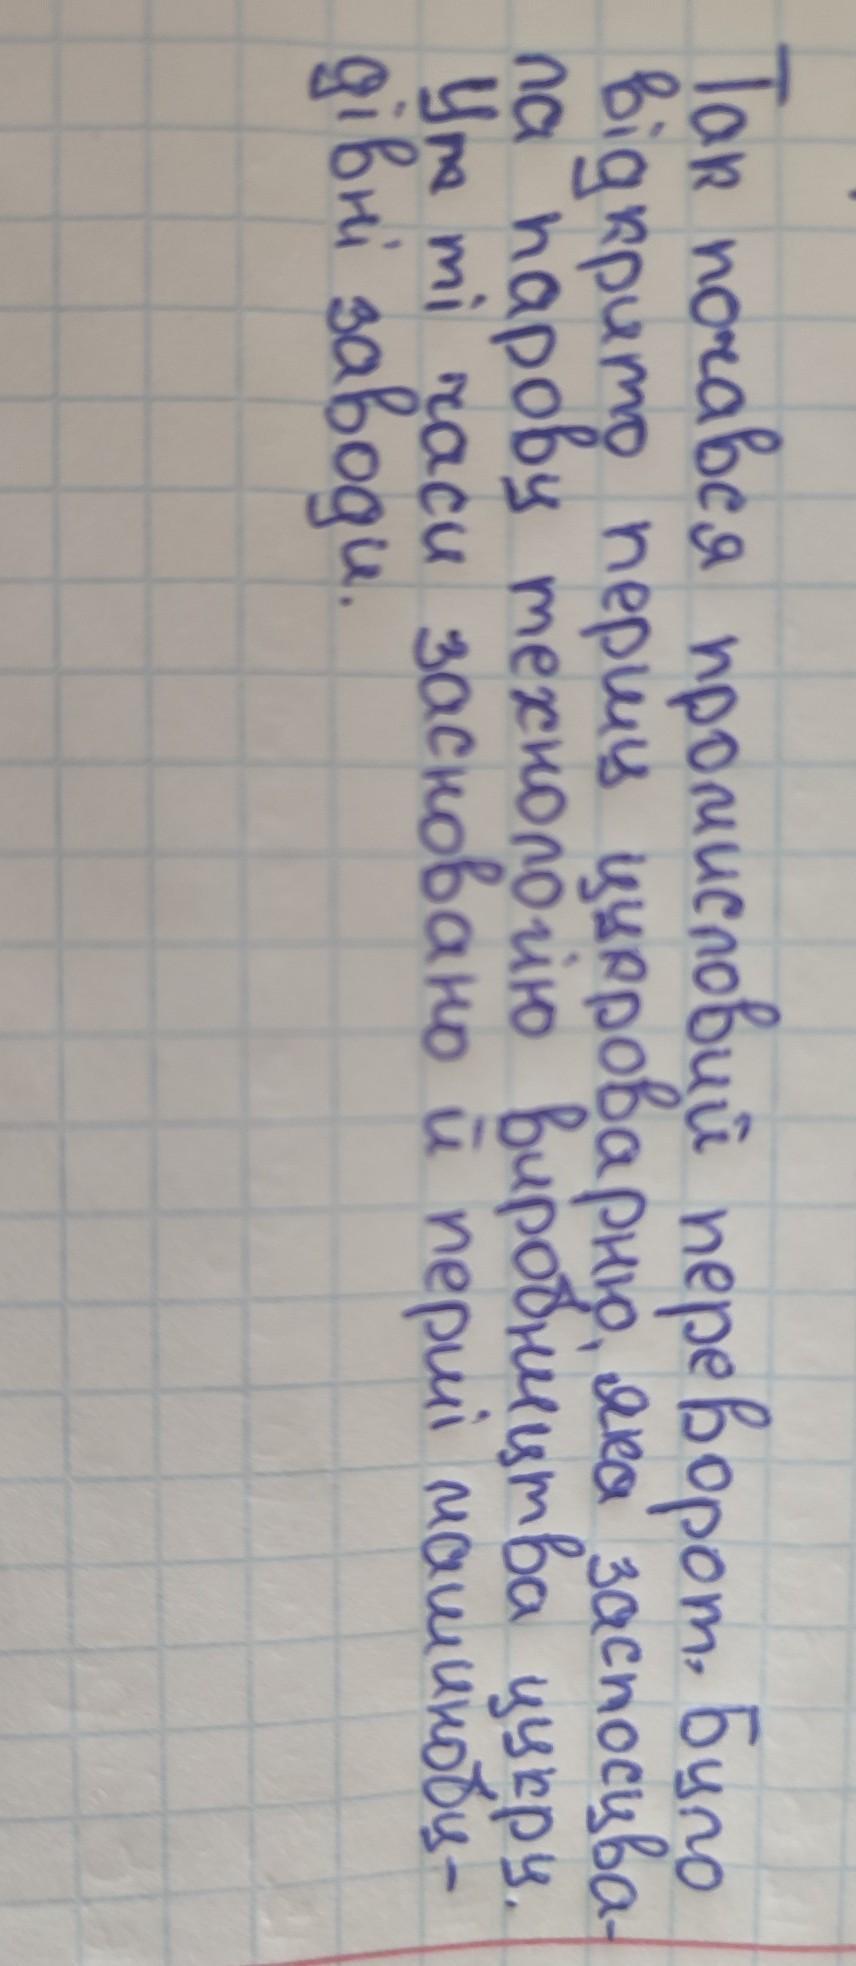 Так почався промисловий переворот. Було
відкрито першу цукроварню, яка заспосцва-
ла парову технологію виробництва цукру.
Ут ті часи засновано й перші машинобу-
дівні заводи.